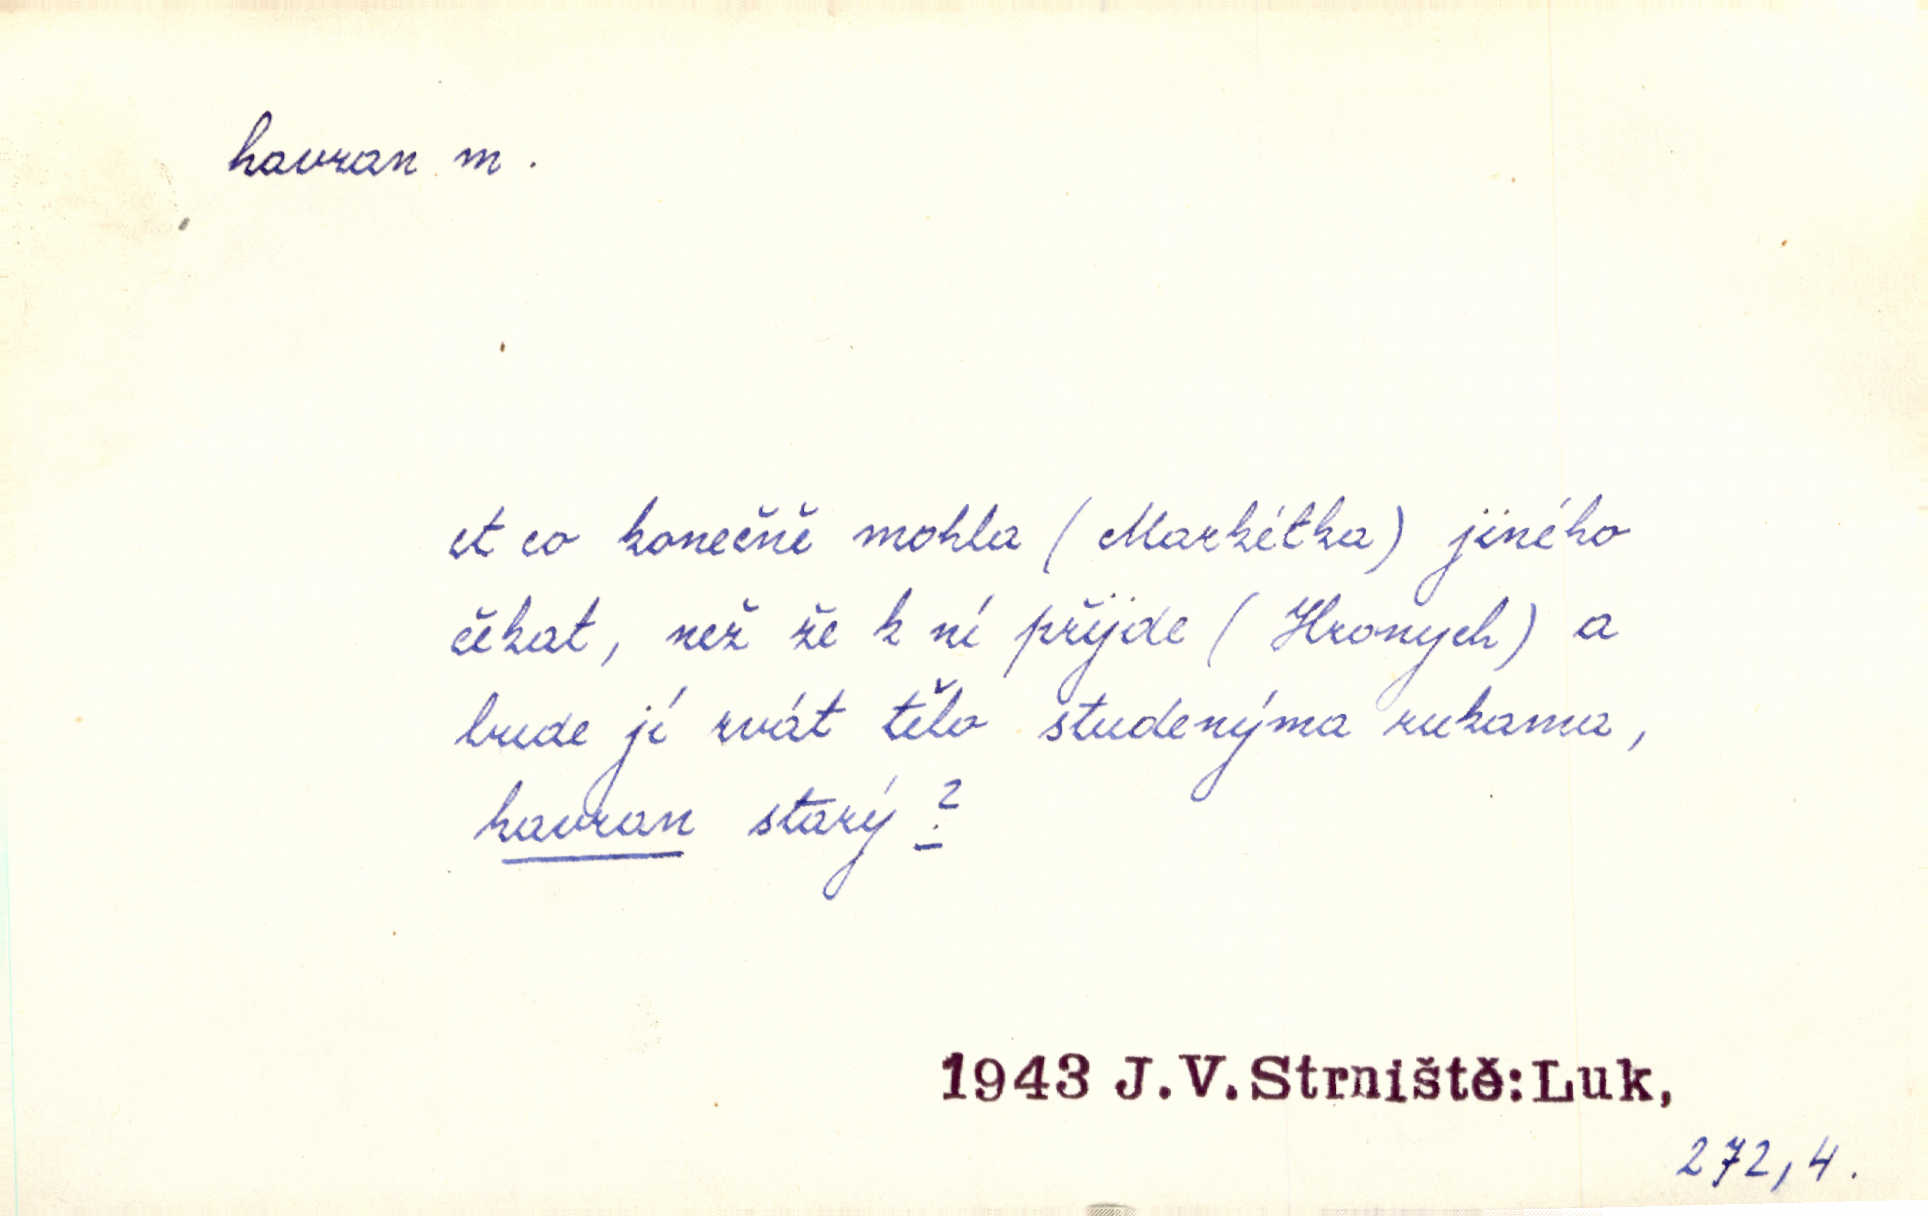 havran m.
A co konečně mohla (Markétka) jiného
čekat, než že k ní přijde (Hronych) a
bude jí rvát tělo studenýma rukama,
havran starý?
1943 J.V.Strniště:Luk,
272,4.